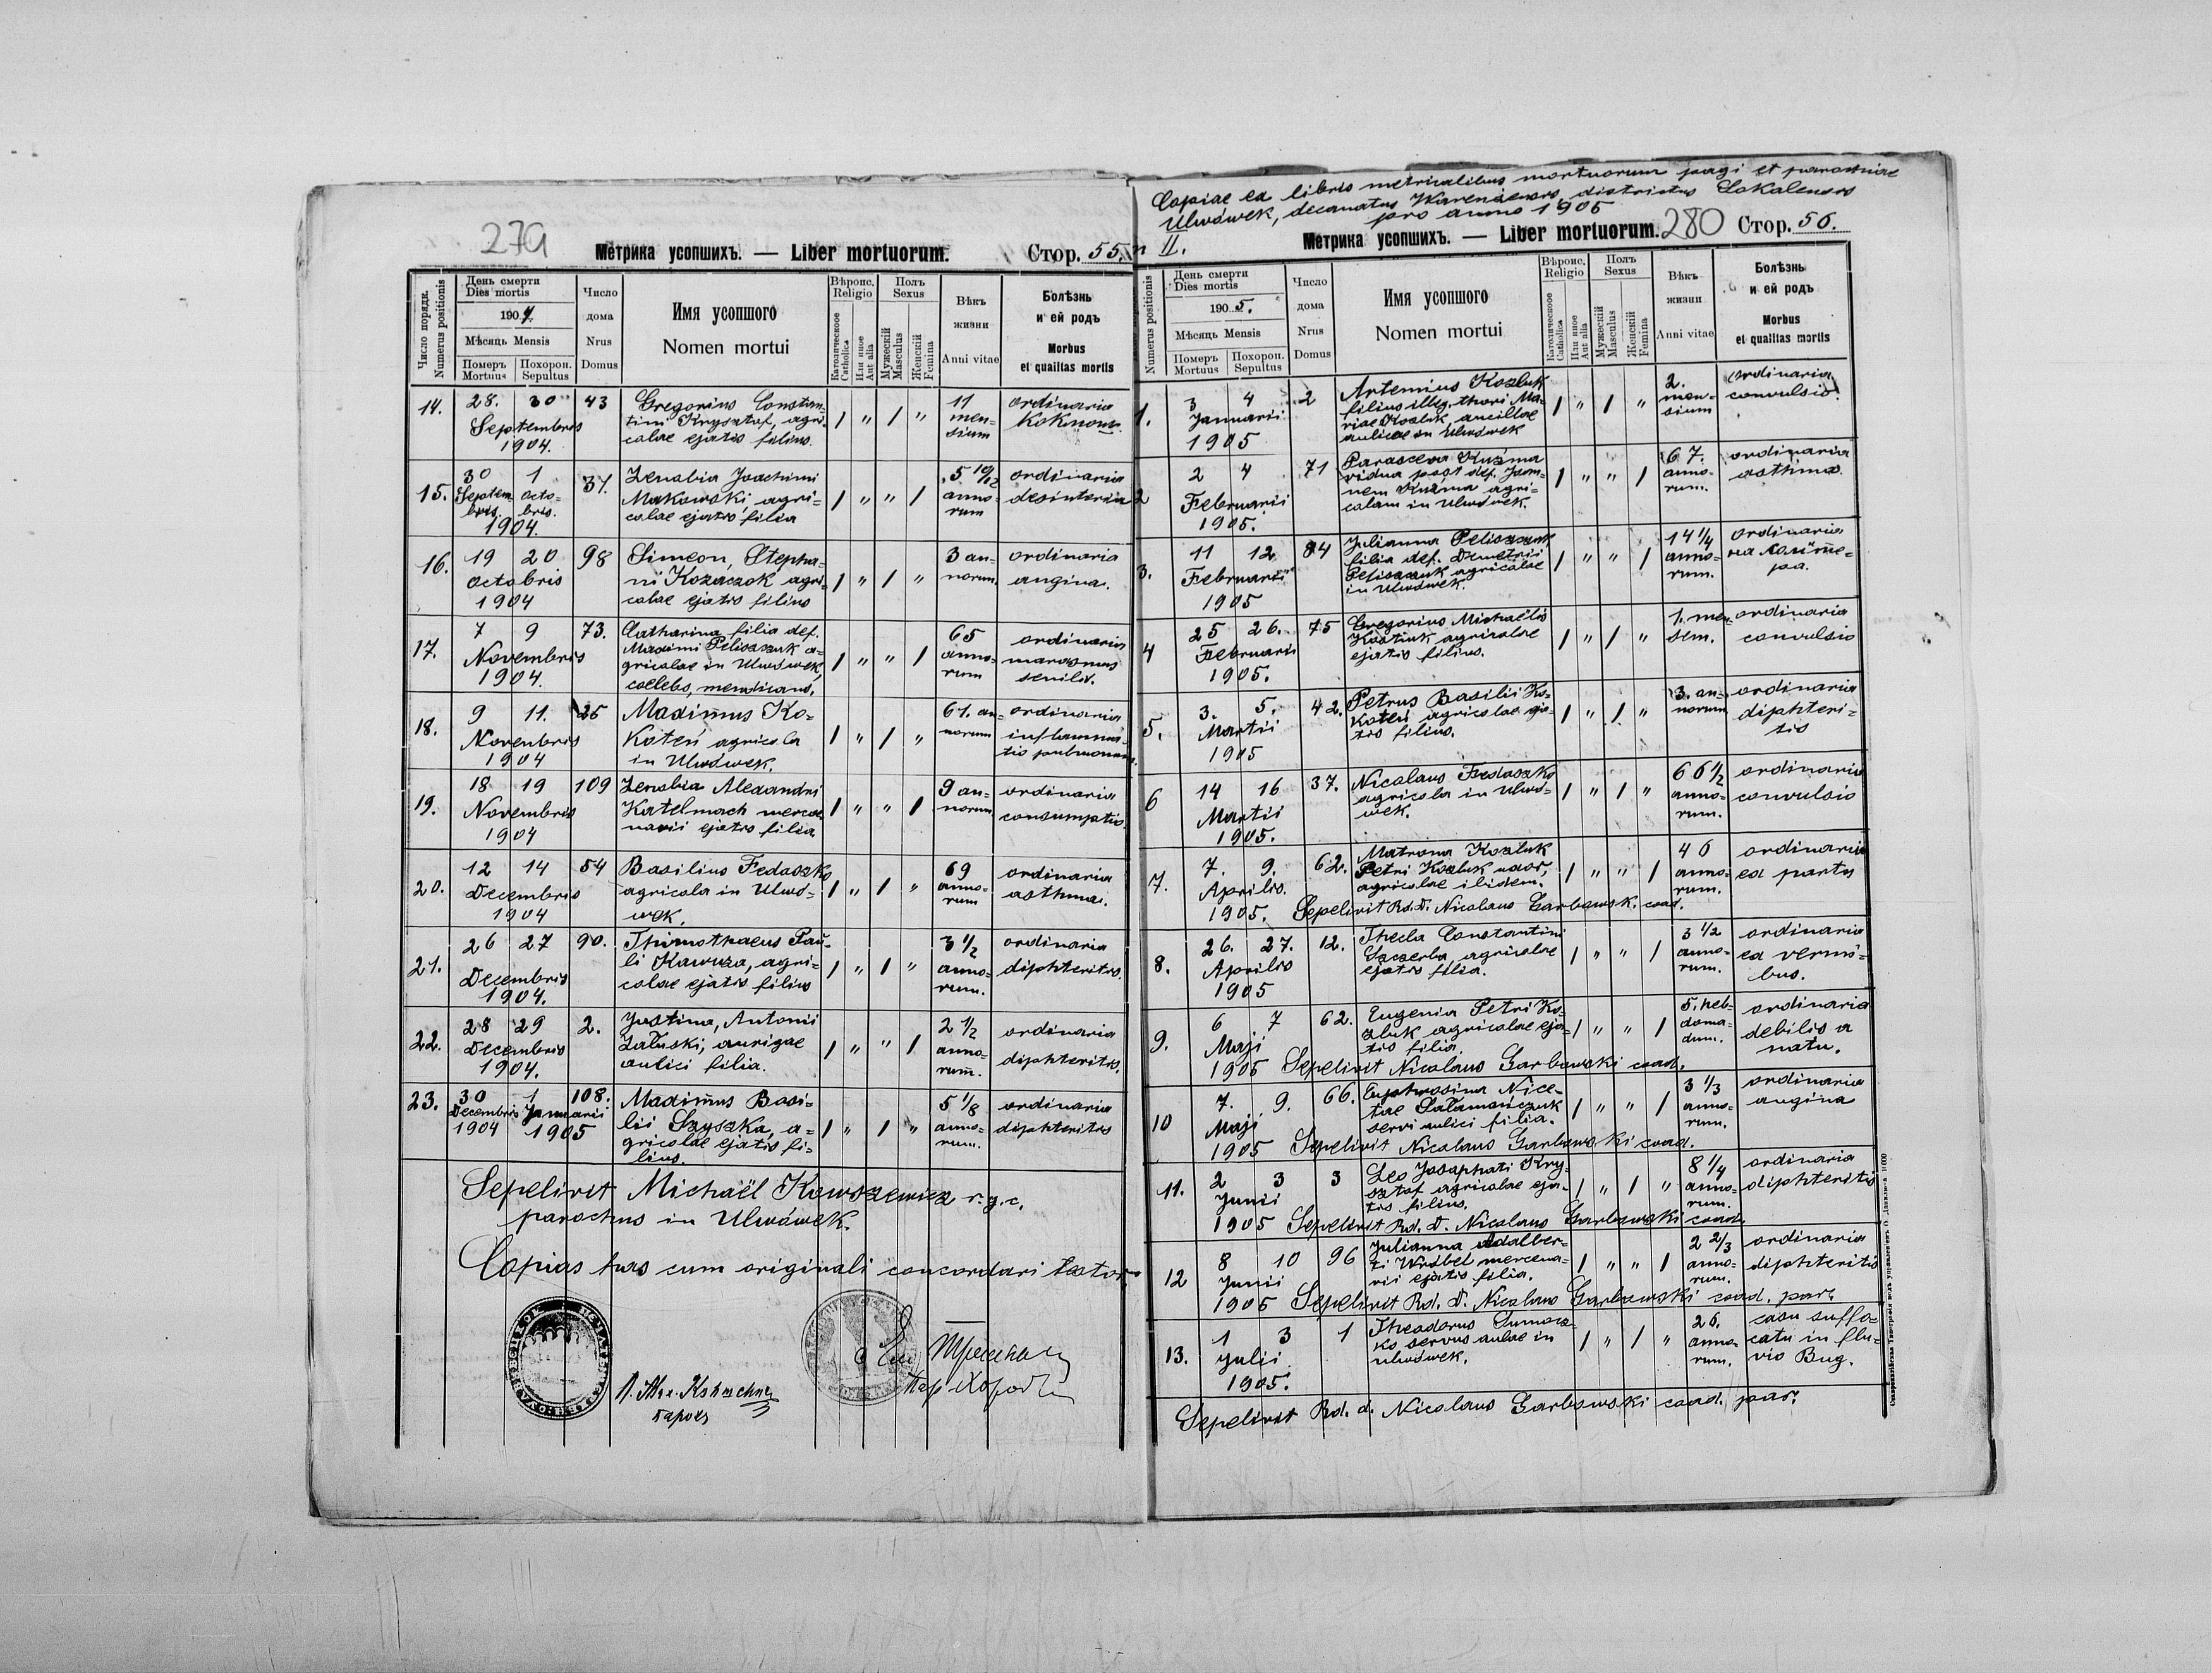 279
Метрика усопшихъ. — Liber mortuorum.
Стор. 55.
Число порядк.
Numerus positionis
День смерти
Dies mortis
1904.
Мѣсяць Mensis
Померъ
Mortuus
Похорон.
Sepultus
Число
дома
Nrus
Domus
Имя усопшого
Nomen mortui
Вѣроис.
Religio
Католическое
Catholica
Или иное
Aut alia
Полъ
Sexus
Мужескій
Masculus
Женскій
Femina
Вѣкъ
жизни
Anni vitae
Болѣзнь
и ей родъ
Morbus
et qualitas mortis
14. 28. 30 Septembris 1904. 43 Gregorius Constan-
tini Krysztof, agri-
colae ejatis filius. / " / " 11
men-
sium ordinaria
15. 30 Septem-
bris. 1 Octo-
bris. 1904. 37. Zenobia Joachimi
Makowski, agri-
colae ejatis filia / " " / 5 10/12
anno-
rum ordinaria
desinteria
16. 19 20 Octobris 1904 98 Simeon, Stepha-
ni Kozaczok agri-
colae ejatis filius / " / " 3 an-
norum. ordinaria
angina.
17. 7 9 Novembris 1904. 73. Catharina filia def.
Maximi Peliszczuk a-
gricolae in Uhnówek,
coelebs, mendicans. / " " / 65
anno-
rum ordinaria
marasmus
senilis.
18. 9 11. Novembris 1904 25 Maximus Ko-
koteń agricola
in Ulwówek. / " / " 61. an-
norum ordinaria
inflamma-
tio pulmonum.
19. 18 19 Novembris 1904 109 Zenobia Alexandri
Katelmach merce-
narii ejatis filia / " " / 9 an-
norum ordinaria
consumptio.
20. 12 14 Decembris 1904 54 Basilius Fedaszko
agricola in Ulwó-
wek. / " / " 69
anno-
rum ordinaria
asthma.
21. 26 27 Decembris 1904. 90. Thimothaeus Pau-
li Kawuza, agri-
colae ejatis filius / " / " 3 1/2
anno-
rum. ordinaria
diphteritis.
22. 28 29 Decembris 1904. 2. Justina, Antonii
Załuski, aurigae
aulici filia. / " " / 2 1/2
anno-
rum. ordinaria
diphteritis.
23. 30 Decembris 1904 1 Januarii 1905 108. Maximus Basi-
lii Szyszka, a-
gricolae ejatis fi-
lius. / " / " 5 1/8
anno-
rum. ordinaria
diphteritis
Sepelivit Michaël Kowszewicz r.g.c.
parochus in Ulwówek.
Copias has cum originali concordari testor
Copiae ex libris metricalibus mortuorum pagi et parochiae
Ulwówek, decanatus Warenżensis, districtus Sokalensis
pro anno 1905
II.
Метрика усопшихъ. — Liber mortuorum.
280
Стор. 56.
Numerus positionis
День смерти
Dies mortis
1905.
Мѣсяць Mensis
Померъ
Mortuus
Похорон.
Sepultus
Число
дома
Nrus
Domus
Имя усопшого
Nomen mortui
Вѣроис.
Religio
Католическое
Catholica
Или иное
Aut alia
Полъ
Sexus
Мужескій
Masculus
Женскій
Femina
Вѣкъ
жизни
Anni vitae
Болѣзнь
и ей родъ
Morbus
et qualitas mortis
1. 3 4 Januarii 1905 2 Artemius Kozluk
filius illeg. thori Ma-
riae Kozluk, ancillae
aulicae in Ulwówek / " / " 2.
men-
sium ordinaria
convulsio.
2 2 4 Februarii 1905. 71 Parasceva Kuźma
vidua post def. Joan-
nem Kuźma agri-
colam in Ulwówek. / " " / 67.
anno-
rum. ordinaria
asthma.
3. 11 12 Februarii 1905 84 Julianna Peliszczuk
filia def. Demetrii
Peliszczuk agricolae
in Ulwówek. / " " / 14 1/4
anno-
rum. ordinaria
4 25 26. Februarii 1905. 75 Gregorius Michaëlis
Kostiuk agricolae
ejatis filius. / " / " 1. men-
sem. ordinaria
convulsio
5. 3. 5. Martii 1905 42. Petrus Basilii Ko-
koteń agricolae eja-
tis filius. / " / " 3. an-
norum ordinaria
diphteri-
tis
6 14 16 Martii 1905. 37. Nicolaus Fedaszko
agricola in Ulwó-
wek. / " / " 66 1/2
anno-
rum. ordinaria
convulsio
7. 7. 9. Aprilis. 1905. 62. Matrona Kozluk
Petri Kozluk uxor,
agricolae ibidem. / " " / 40
anno-
rum. ordinaria
ex partu
Sepelivit Rd. D. Nicolaus Garbowsk. coad.
8. 26. 27. Aprilis 1905 12. Thecla Constantini
Szczerba agricolae
ejatis filia. / " " / 3 1/2
anno-
rum. ordinaria
ex vermi-
bus.
9. 6 7 Maji 1905 62. Eugenia Petri Ko-
zluk agricolae eja-
tis filia. / " " / 5. heb-
doma-
dum. ordinaria
debilis a
natu.
Sepelivit Nicolaus Garbowski coad.
10 7. 9. Maji 1905 66. Euphrosina Nice-
tae Sałamanczuk
servi aulici filia. / " " / 3 1/3
anno-
rum. ordinaria
angina
Sepelivit Nicolaus Garbowski coad.
11. 2 3 Junii 1905 3 Leo Josaphati Kry-
sztof agricolae eja-
tis filius. / " / " 8 1/4
anno-
rum. ordinaria
diphteritis
Sepelivit Rd. D. Nicolaus Garbowski coad.
12 8 10 Junii 1905 96 Julianna Adalber-
ti Wróbel mercena-
rii ejatis filia. / " " / 2 2/3
anno-
rum. ordinaria
diphteritis
Sepelivit Rd. D. Nicolaus Garbowski coad. par.
13. 1 3 Julii 1905. 1 Theodorus Sumosz-
ko servus aulae in
Ulwówek. / " / " 26.
anno-
rum. casu suffo-
catu in flu-
vio Bug.
Sepelivit Rd. d. Nicolaus Garbowski coad. par.